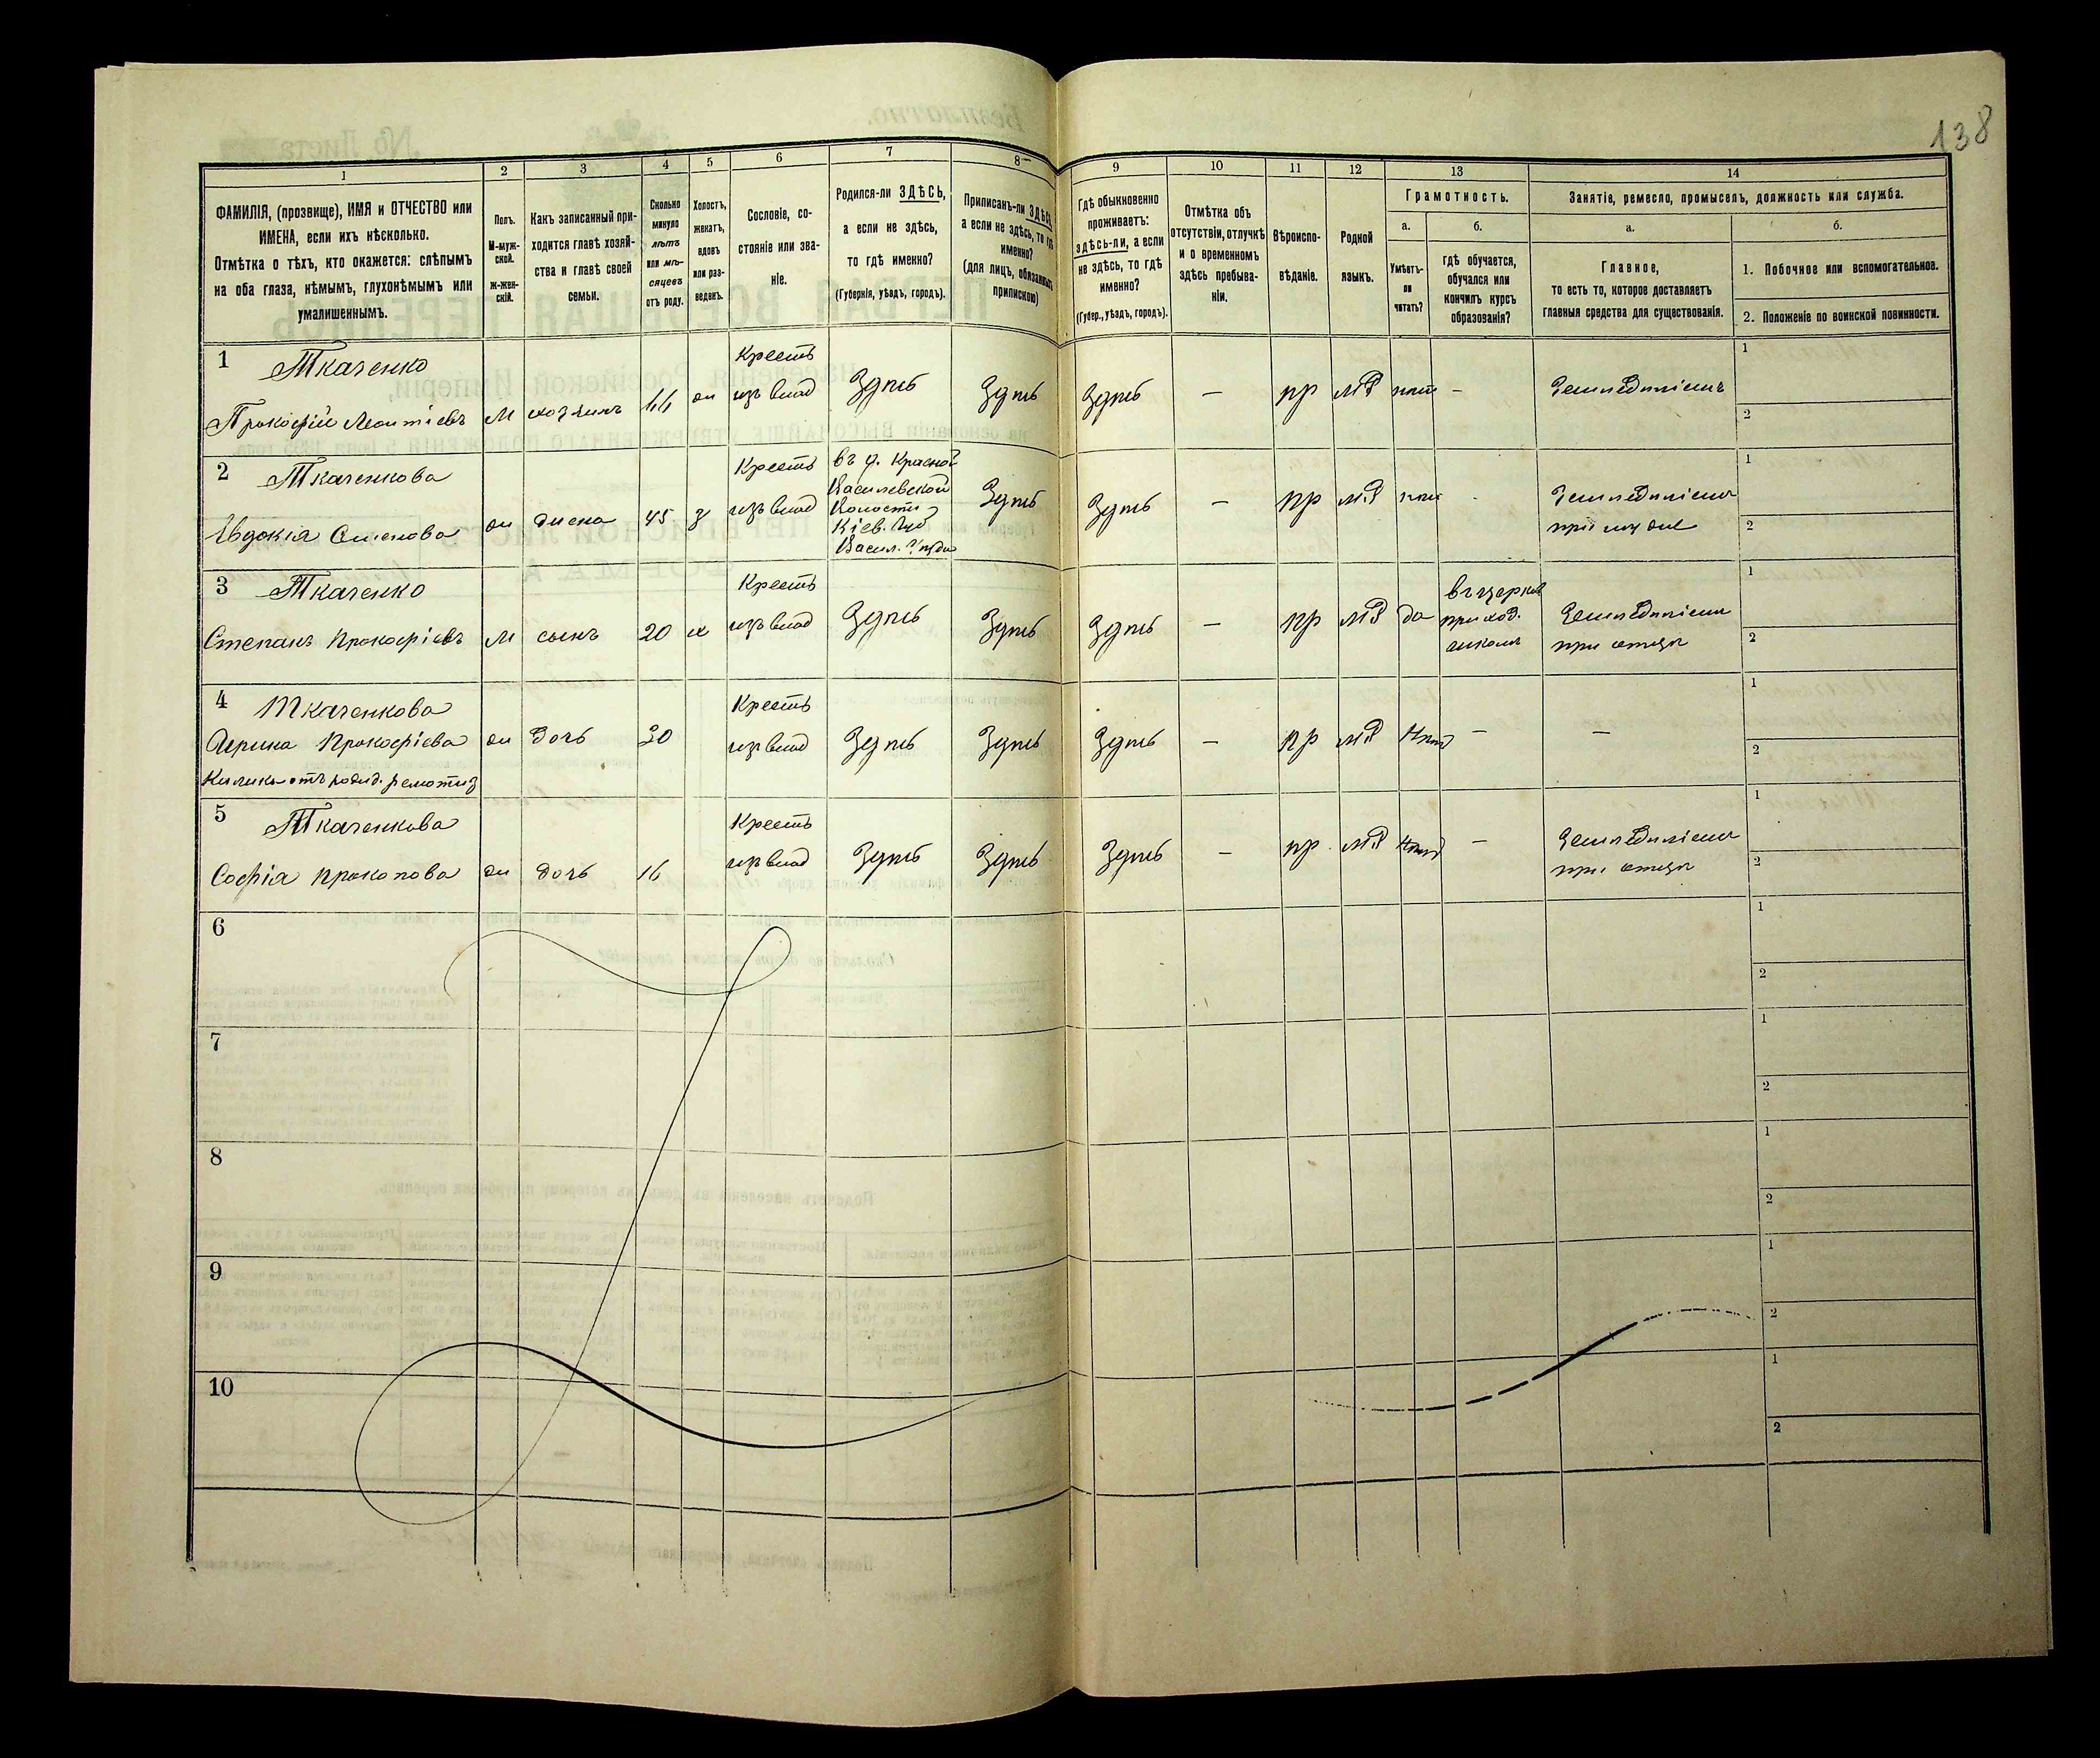 138
1 2 3 4 5 6 7 8 9 10 11 12 13 14
ФАМИЛІЯ, (прозвище), ИМЯ и ОТЧЕСТВО или
ИМЕНА, если ихъ нѣсколько.
Отмѣтка о тѣхъ, кто окажется: слѣпымъ
на оба глаза, нѣмымъ, глухонѣмымъ или
умалишеннымъ.
Полъ.
М-муж-
ской.
Ж-жен-
скій.
Какъ записанный при-
ходится главѣ хозяй-
ства и главѣ своей
семьи.
Сколько
минуло
лѣтъ
или мѣ-
сяцевъ
отъ роду.
Холостъ,
женатъ,
вдовъ
или раз-
веденъ.
Сословіе, со-
стояніе или зва-
ніе.
Родился-ли ЗДѢСЬ,
а если не здѣсь,
то гдѣ именно?
(Губернія, уѣздъ, городъ).
Приписанъ-ли ЗДѢСЬ,
а если не здѣсь, то гдѣ
именно?
(для лицъ, обязанныхъ
припискою)
Гдѣ обыкновенно
проживаетъ:
здѣсь-ли, а если
не здѣсь, то гдѣ
именно?
(Губер., уѣздъ, городъ).
Отмѣтка объ
отсутствіи, отлучкѣ
и о временномъ
здѣсь пребыва-
ніи.
Вѣроиспо-
вѣданіе.
Родной
языкъ.
Грамотность.
а.
Умѣетъ-
ли
читать?
б.
гдѣ обучается,
обучался или
кончилъ курсъ
образованія?
Занятіе, ремесло, промыселъ, должность или служба.
а.
Главное,
то есть то, которое доставляетъ
главныя средства для существованія.
б.
1. Побочное или вспомогательное.
2. Положеніе по воинской повинности.
1 Ткаченко
Прокофій Леонтіевъ М хозяинъ ж Крестъ
изъ влад Здѣсь Здѣсь Здѣсь — пр м нѣт — Земледѣліемъ
1
2
2 Ткаченкова
Евдокія Семенова ж жена 45 з Крестъ
изъ влад
въ д. Красной
Василевской
Волости
Кіев. Губ
Васил. уѣзда
Здѣсь Здѣсь — пр м нѣт Земледѣліемъ
при муже
1
2
3 Ткаченко
Степанъ Прокофіевъ М сынъ 20 х Крестъ
изъ влад Здѣсь Здѣсь Здѣсь — пр м да
въ церков
приход.
школѣ
Земледѣліемъ
при отцѣ
1
2
4 Ткаченкова
Ирина Прокофіева ж дочь 30 Крестъ
изъ влад Здѣсь Здѣсь Здѣсь — пр м Нѣт — —
1
2
5 Ткаченкова
Софія Прокопова ж дочь 16 Крестъ
изъ влад Здѣсь Здѣсь Здѣсь — пр. м Нѣт — Земледѣліемъ
при отцѣ
1
2
6
1
2
7
1
2
8
1
2
9
1
2
10
1
2